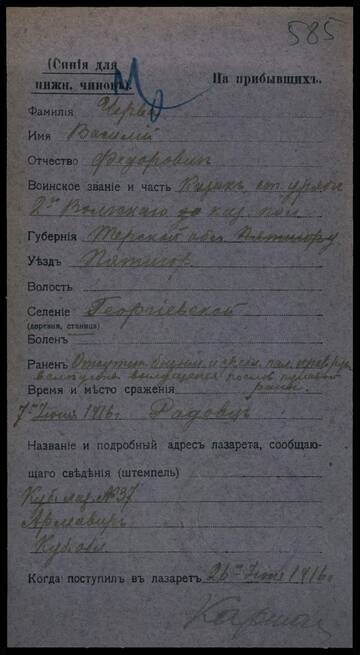 585
(Синія для
нижн. чиновъ).
На прибывшихъ.
Фамилія
Имя Василій
Отчество Федоровичъ
Воинское званіе и часть Казакъ ст. уряд
2го Волжскаго каз. пол
Губернія Терской обл.
Уѣздъ Пятигор
Волость
Селеніе Георгіевской
(деревня, станица)
Боленъ
Раненъ
Время и мѣсто сраженія раны.
7го Іюня 1916г Радовцъ
Названіе и подробный адресъ лазарета, сообщаю-
щаго свѣдѣнія (штемпель)
Куб. лаз. № 37
Армавиръ
Куб. обл
Когда поступилъ въ лазаретъ 26го Іюня 1916г.